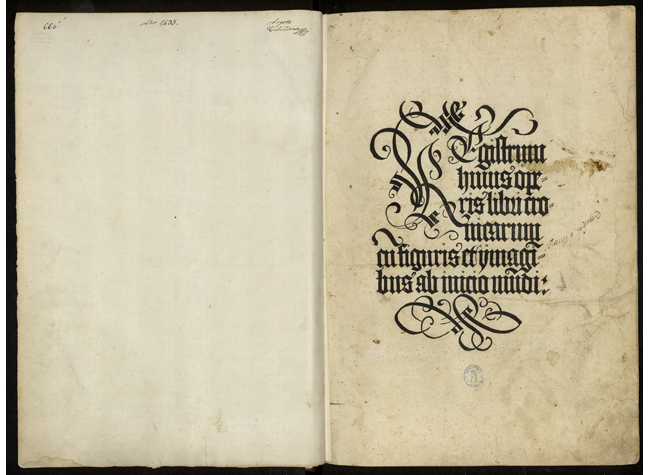 660
Año 1493.
REgistrum
huius ope-
ris libri cro-
nicarum
cū figuris et ymagī-
bus ab inicio mūdi: